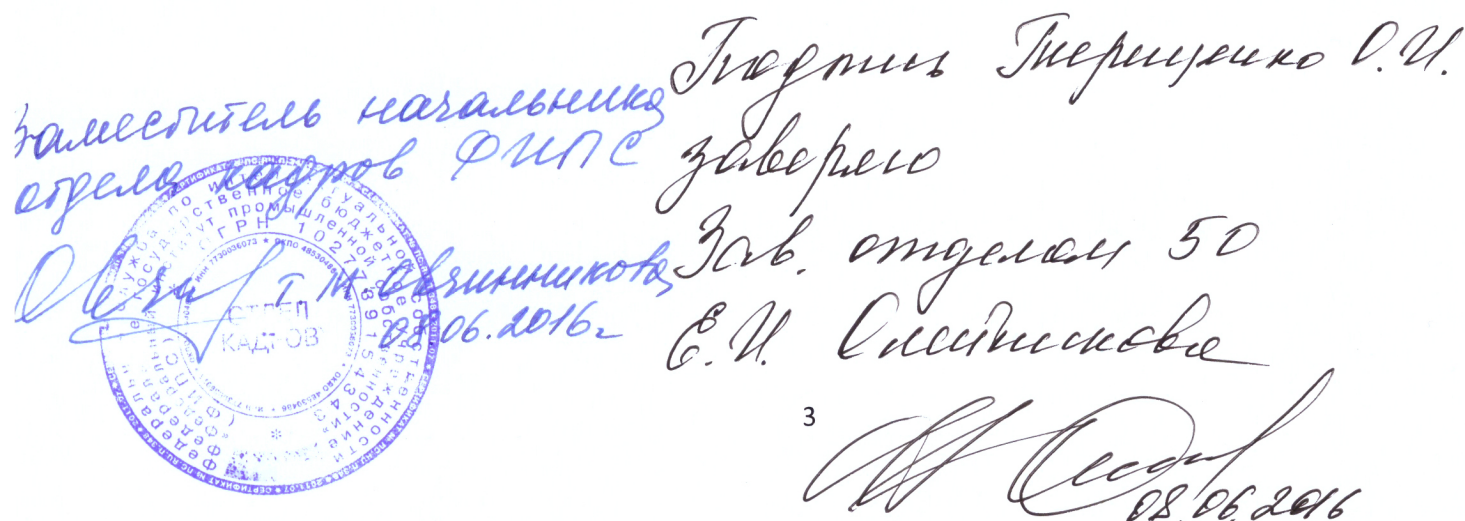 Заместитель начальника
отдела кадров ФИПС
Т М Овчинникова
08.06.2016г
ОТДЕЛ
КАДРОВ
ОГРН 1027739154343
(ФИПС)
Подпись Терещенко О.И.
заверяю
Зав. отделом 50
Е.И. Олейникова
3
08.06.2016